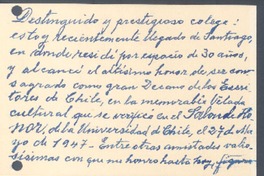 Destinguido y prestigioso colega:
estoy recientemente llegado de Santiago
en donde residí por espacio de 30 años,
y alcancé el altísimo honor de ser con
sagrado como gran Decano de los Escri
tores de Chile, en la memorable Velada
cultural que se verificó en el Salon de Ho
nor, de la Universidad de Chile, el 27 de Ma
yo de 1947 - Entre otras amistades valio
sísimas con que me honro hasta hoy, figura